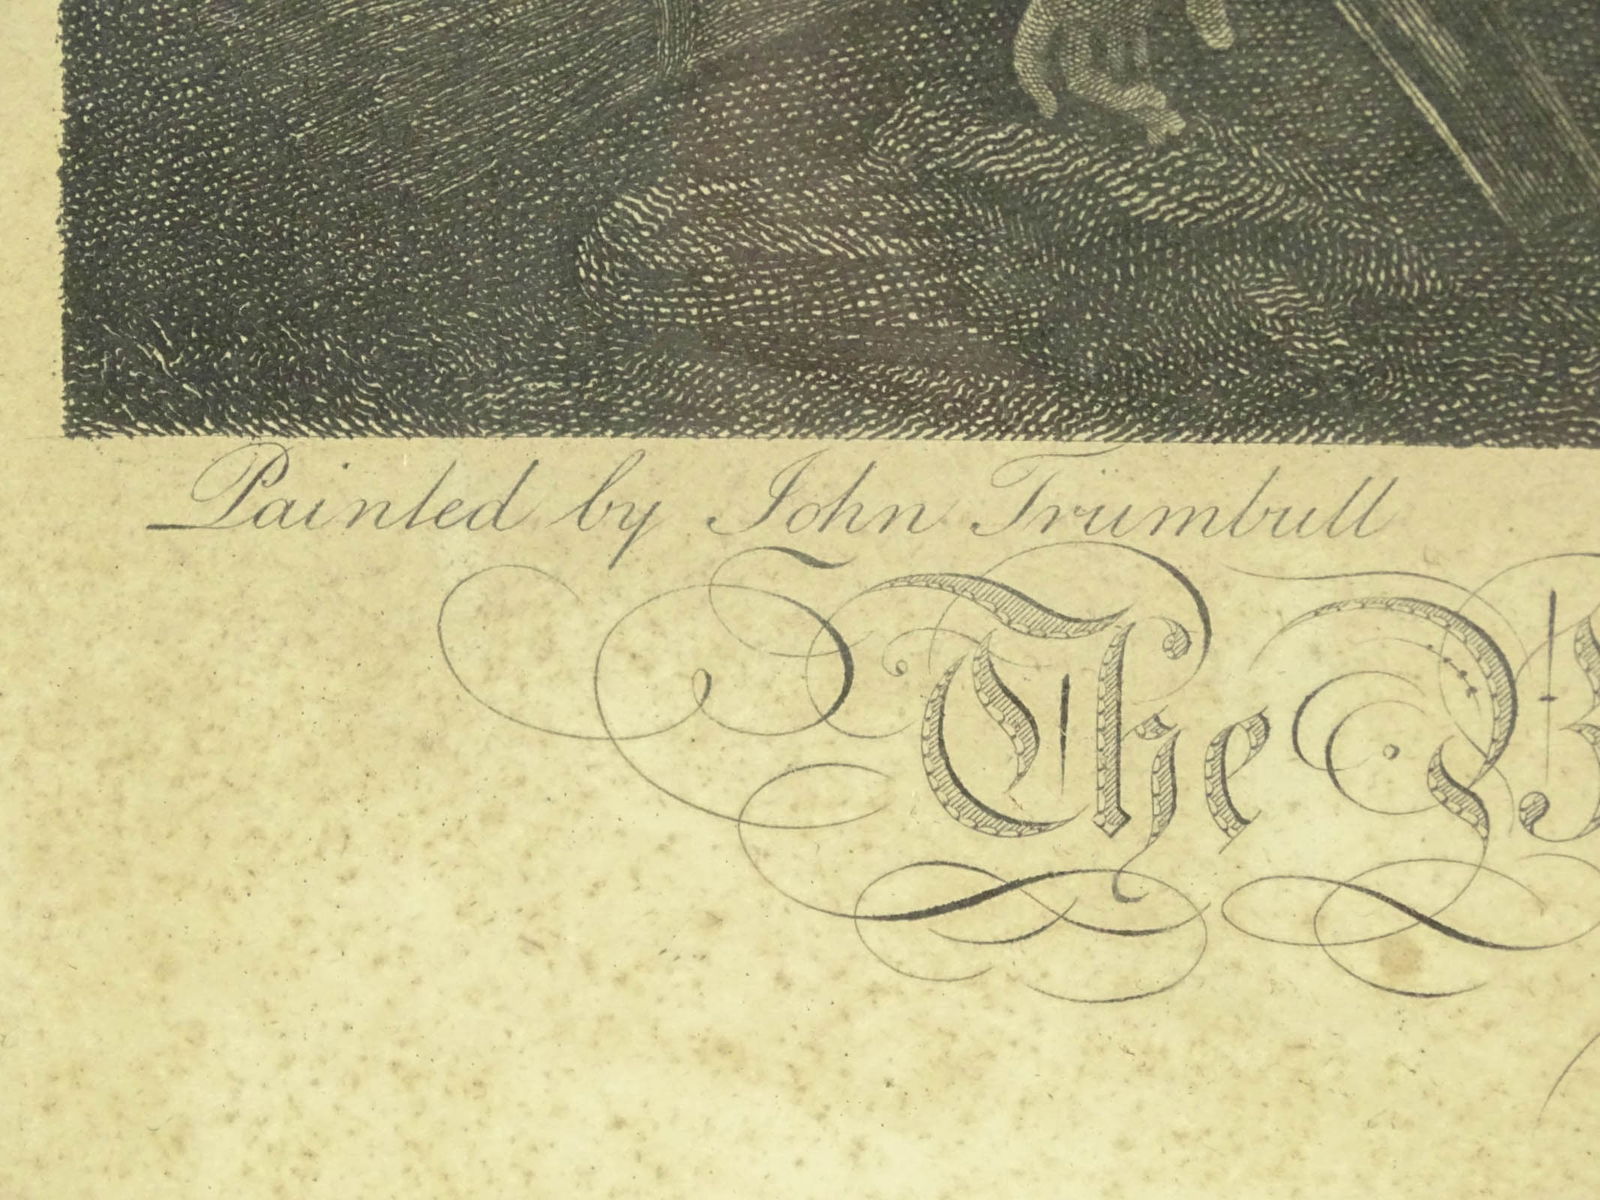 Painted by John Trumbull
The B